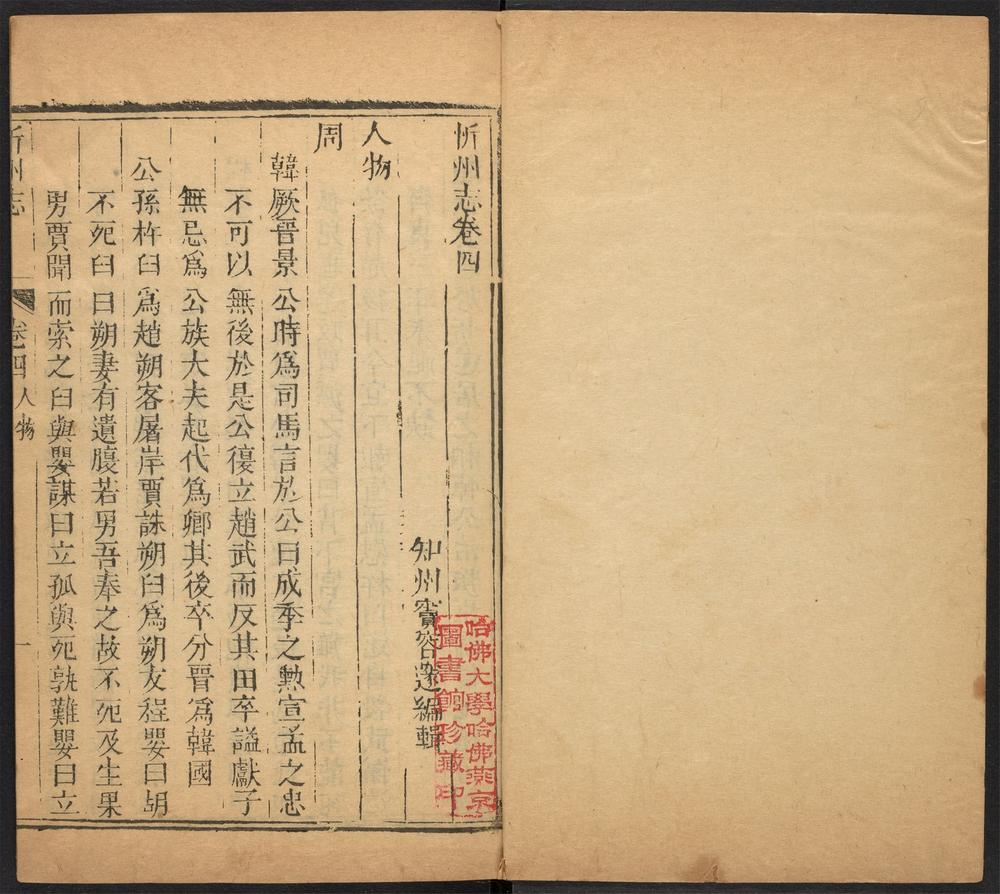 忻州志卷四
知州竇容邃編輯
人物
周
韓厥晉景公時爲司馬言於公曰成季之勲宣孟之忠
不可以無後於是公復立趙武而反其田卒謚獻子
無忌爲公族大夫起代爲卿其後卒分晉爲韓國
公孫杵臼爲趙朔客屠岸賈誅朔臼爲朔友程嬰曰胡
不死臼曰朔妻有遺腹若男吾奉之故不死及生果
男賈聞而索之臼與嬰謀曰立孤與死孰難嬰曰立
忻州志 卷四 人物 一
哈佛大學哈佛燕京
圖書館珍藏印